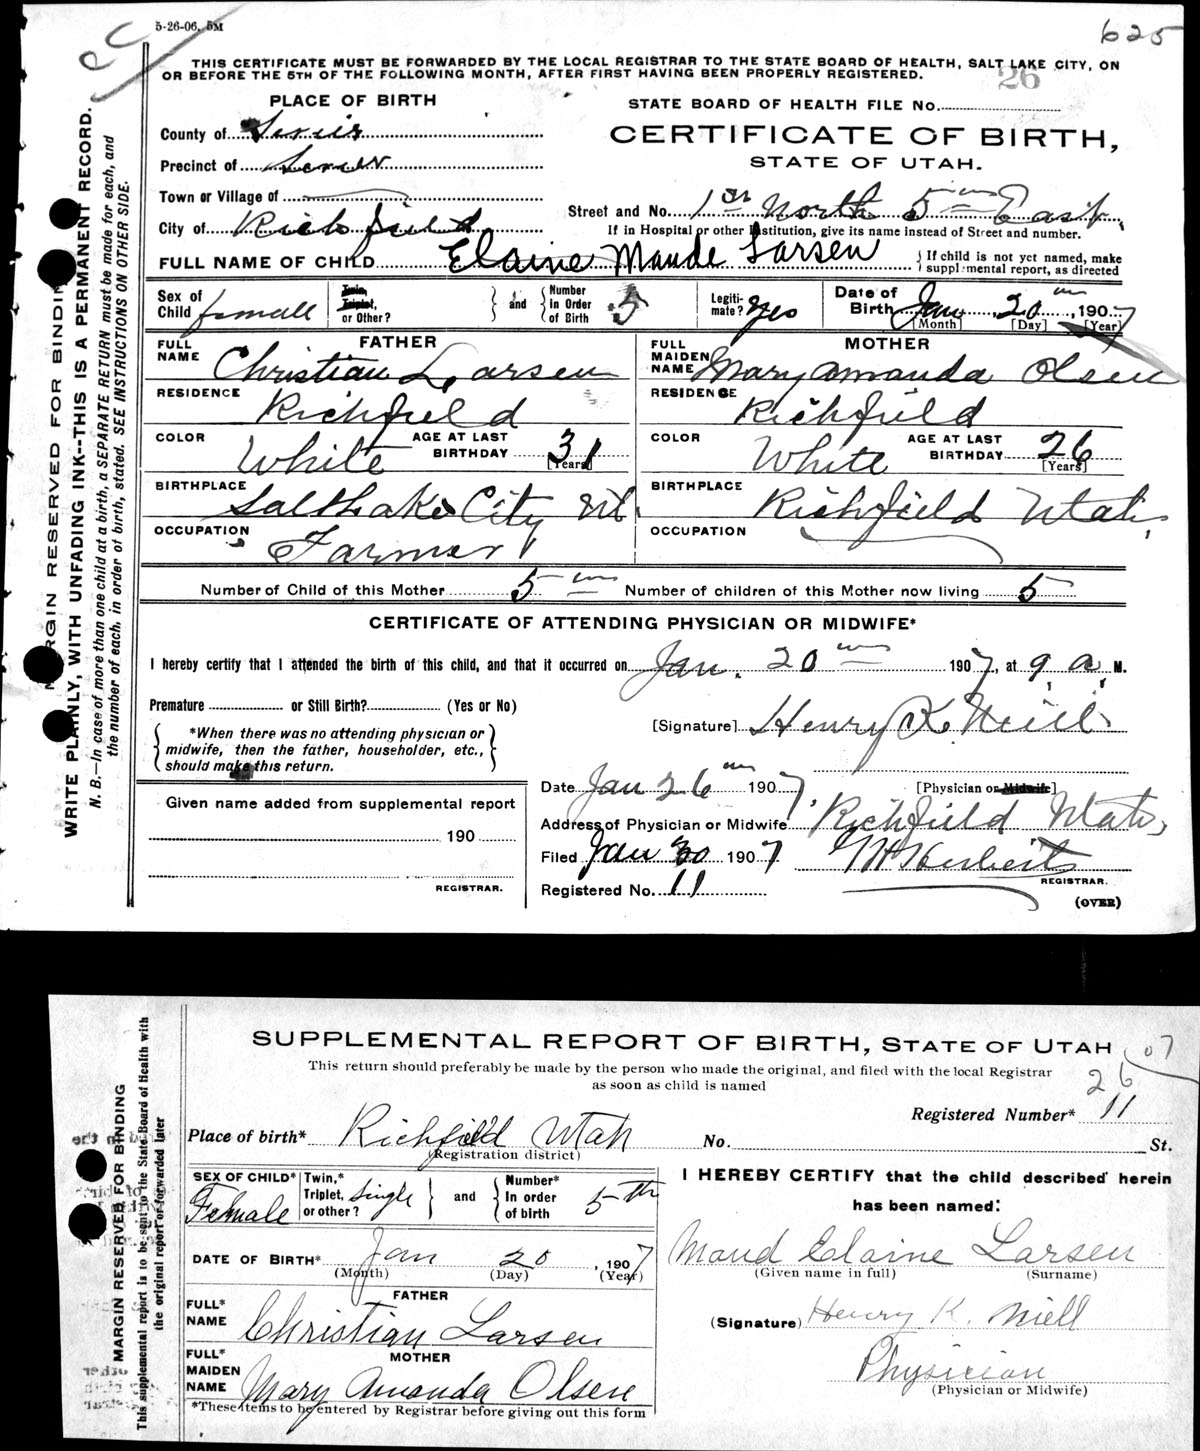 5-26-06, 5M
625
THIS CERTIFICATE MUST BE FORWARDED BY THE LOCAL REGISTRAR TO THE STATE BOARD OF HEALTH, SALT LAKE CITY, ON
OR BEFORE THE 5TH OF THE FOLLOWING MONTH, AFTER FIRST HAVING BEEN PROPERLY REGISTERED.
26
PLACE OF BIRTH
STATE BOARD OF HEALTH FILE No.
County of Sevier
CERTIFICATE OF BIRTH,
Precinct of Sevier
STATE OF UTAH.
Town or Village of
Street and No. 1st North 5th East
City of Richfield
If in Hospital or other Institution, give its name instead of Street and number.
FULL NAME OF CHILD Elaine Maude Larsen
If child is not yet named, make supplemental report, as directed
Sex of Child female
Twin, Triplet, or Other?
and
Number In Order of Birth 5
Legitimate? yes
Date of Birth Jan 20th, 1907
[Month] [Day] [Year]
FATHER
MOTHER
FULL NAME Christian Larsen
FULL MAIDEN NAME Mary Amanda Olsen
RESIDENCE Richfield
RESIDENCE Richfield
COLOR White AGE AT LAST BIRTHDAY 31 [Years]
COLOR White AGE AT LAST BIRTHDAY 26 [Years]
BIRTHPLACE Salt Lake City Ut.
BIRTHPLACE Richfield Utah,
OCCUPATION Farmer
OCCUPATION
Number of Child of this Mother 5th Number of children of this Mother now living 5
CERTIFICATE OF ATTENDING PHYSICIAN OR MIDWIFE*
I hereby certify that I attended the birth of this child, and that it occurred on Jan. 20th 1907, at 9 a. M.
Premature or Still Birth? (Yes or No)
[Signature] Henry K. Neill
*When there was no attending physician or
midwife, then the father, householder, etc.,
should make this return.
[Physician or Midwife]
Date Jan 26th 1907,
Given name added from supplemental report
Address of Physician or Midwife Richfield Utah,
190
Filed Jan 30 1907
REGISTRAR.
REGISTRAR.
Registered No. 11
(OVER)
MARGIN RESERVED FOR BINDING
WRITE PLAINLY, WITH UNFADING INK--THIS IS A PERMANENT RECORD.
N. B.—In case of more than one child at a birth, a SEPARATE RETURN must be made for each, and
the number of each, in order of birth, stated. SEE INSTRUCTIONS ON OTHER SIDE.
SUPPLEMENTAL REPORT OF BIRTH, STATE OF UTAH
07
This return should preferably be made by the person who made the original, and filed with the local Registrar
as soon as child is named
26
Registered Number* 11
Place of birth* Richfield Utah No. St.
(Registration district)
SEX OF CHILD* Female
Twin,* Triplet, or other? Single
and
Number* In order of birth 5th
I HEREBY CERTIFY that the child described herein
has been named:
DATE OF BIRTH* Jan 20, 1907
(Month) (Day) (Year)
Maud Elaine Larsen
(Given name in full) (Surname)
FATHER
FULL* NAME Christian Larsen
(Signature) Henry K. Niell
MOTHER
Physician
(Physician or Midwife)
FULL* MAIDEN NAME Mary Amanda Olsen
*These items to be entered by Registrar before giving out this form
MARGIN RESERVED FOR BINDING
This supplemental report is to be sent to the State Board of Health with
the original report or forwarded later